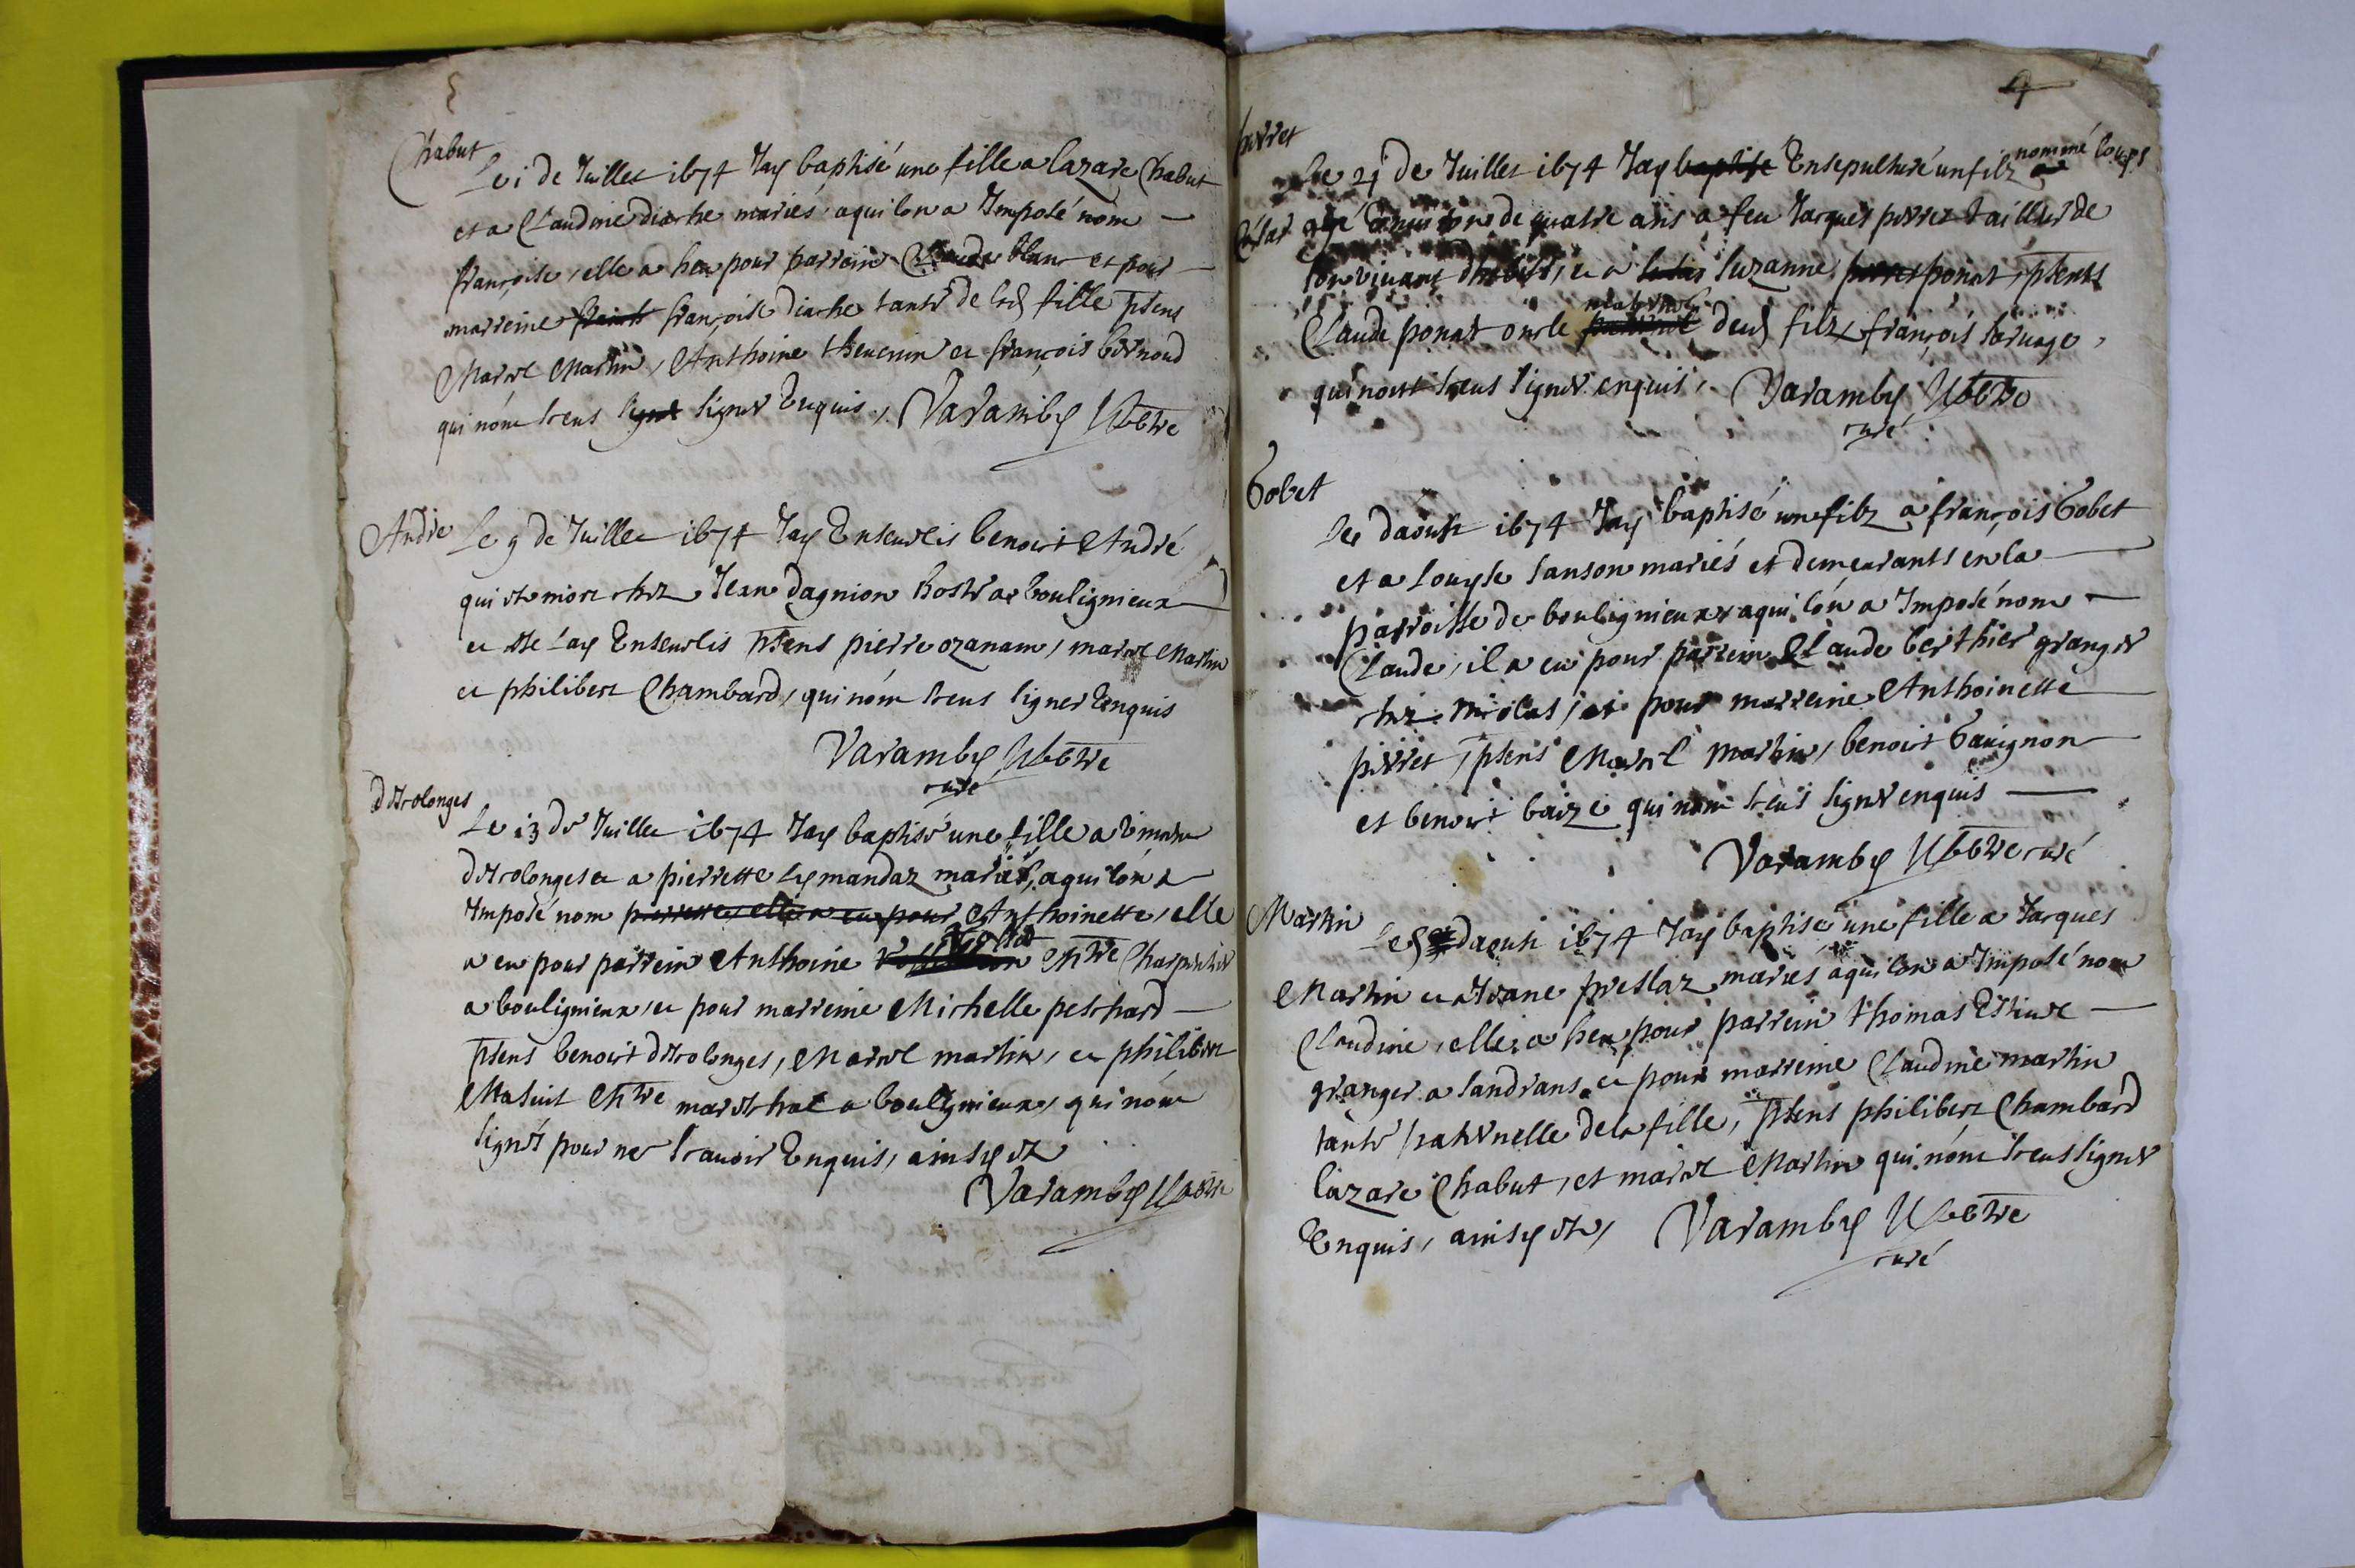 Chabut
Le i de Juillet 1674 Jay baptisé une fille a lazare Chabut
et a Claudine diache mariés aqui lon a Imposé nom
françoise, elle a heu pour parrain Claude blanc et pour
marreine françoise diache tante de lad fille psens
Marcel Martin, Anthoine thevenin et françois bernoud
qui nont sceus signer Enquis, Varamby
André
Le 9 de Juillet 1674 Jay Ensevelis benoist André
qui est mort chez Jean dagnion hoste a boulignieux
et lay Ensevelis psens pierre ozanam, marcel Martin
et philibert Chambard, qui nont sceus signer Enquis
Varamby
curé
descolonges
Le 13 de Juillet 1674 Jay baptisé une fille a
descolonges et a pierrette lymandaz mariés, aqui lon a
Imposé nom pierrette, elle a eu pour Anthoinette, elle
a eu pour parrein Anthoine Charpentier
a boulignieux, et pour marreine Michelle peschard
psens benoist descolonges, Marcel martin, et philibert
Matuit mareschal a boulignieux, qui nont
signés pour ne scavoir Enquis, ainsy est
Varamby
4
perret
nommé louys
Le 21 de Juillet 1674 Jay baptisé Ensepulturé un filz a
agé environ de quatre ans a feu Jacques perret tailleur de
son vivant dhabits, et a Suzanne perret ponat, psents
maternel
Claude ponat oncle paternel dud filz françois servage,
qui nont sceus signer enquis, Varamby
curé
Gobet
Le daoust 1674 Jay baptisé un filz a françois Gobet
et a Louyse Sanson mariés et demeurants en la
parroisse de boulignieux aqui lon a Imposé nom
Claude, il a eu pour parrein Claude berthier granger
chez nicolas, et pour marreine Anthoinette
perret, psens Marcel martin, benoist Gavignon
et benoist baize qui nont sceus signer enquis
Varamby curé
Martin
Le daoust 1674 Jay baptisé une fille a Jacques
Martin et a Jeane preslaz mariés aqui lon a Imposé nom
Claudine, elle a heu pour parrein thomas
granger a Sandrans et pour marreine Claudine martin
tante paternelle de la fille, psens philibert Chambard
lazare Chabut, et marcel Martin qui nont sceus signer
Enquis, ainsy est, Varamby
curé